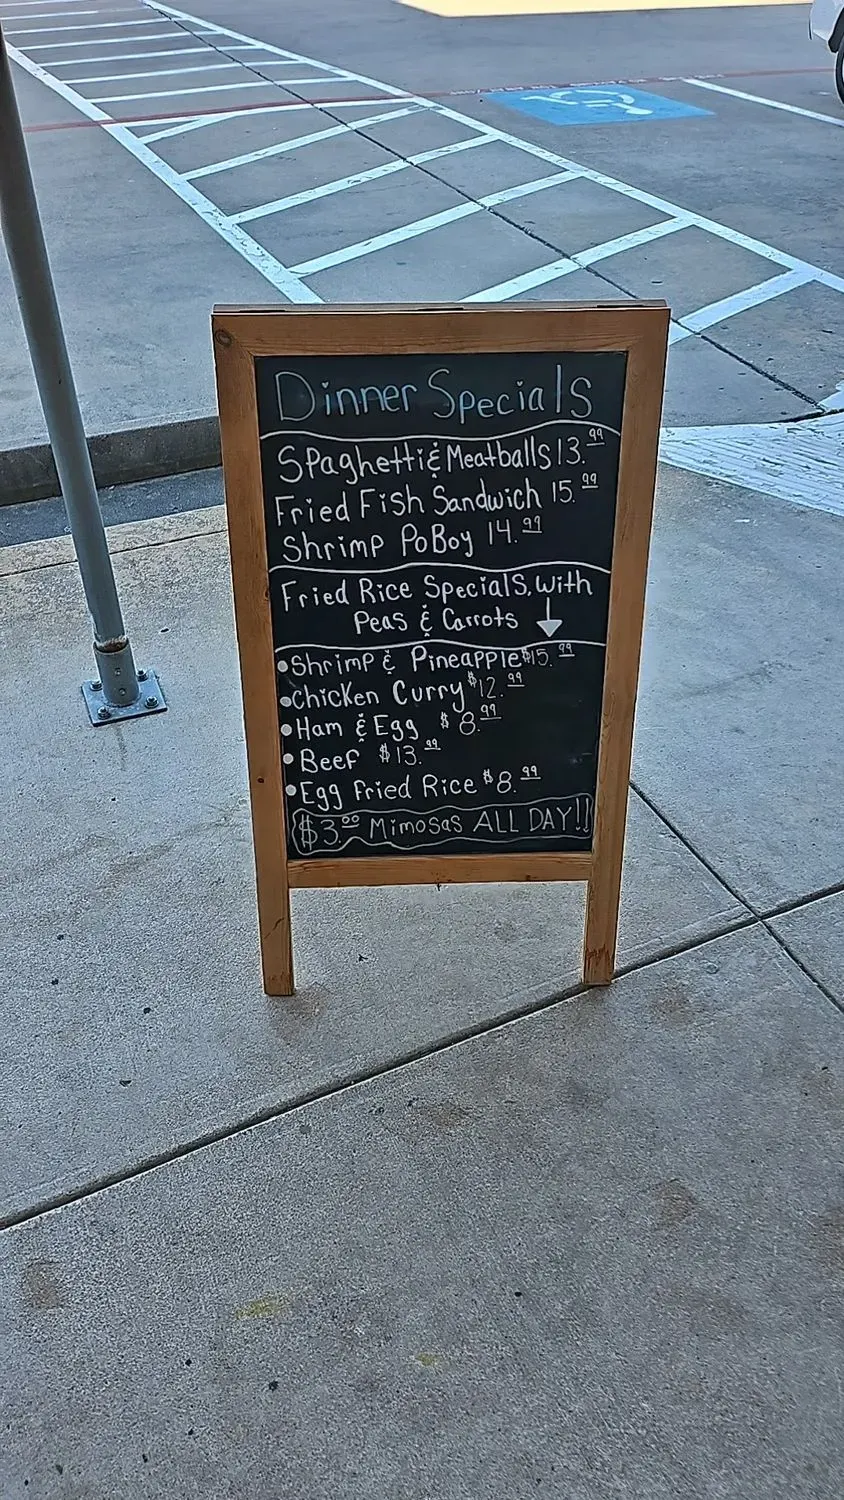 Dinner Specials
Spaghetti & Meatballs 13.99
Fried Fish Sandwich 15.99
Shrimp PoBoy 14.99
Fried Rice Specials, with
Peas & Carrots ↓
•Shrimp & Pineapple $15.99
•Chicken Curry $12.99
•Ham & Egg $8.99
•Beef $13.99
•Egg Fried Rice $8.99
$3.00 Mimosas ALL DAY!!